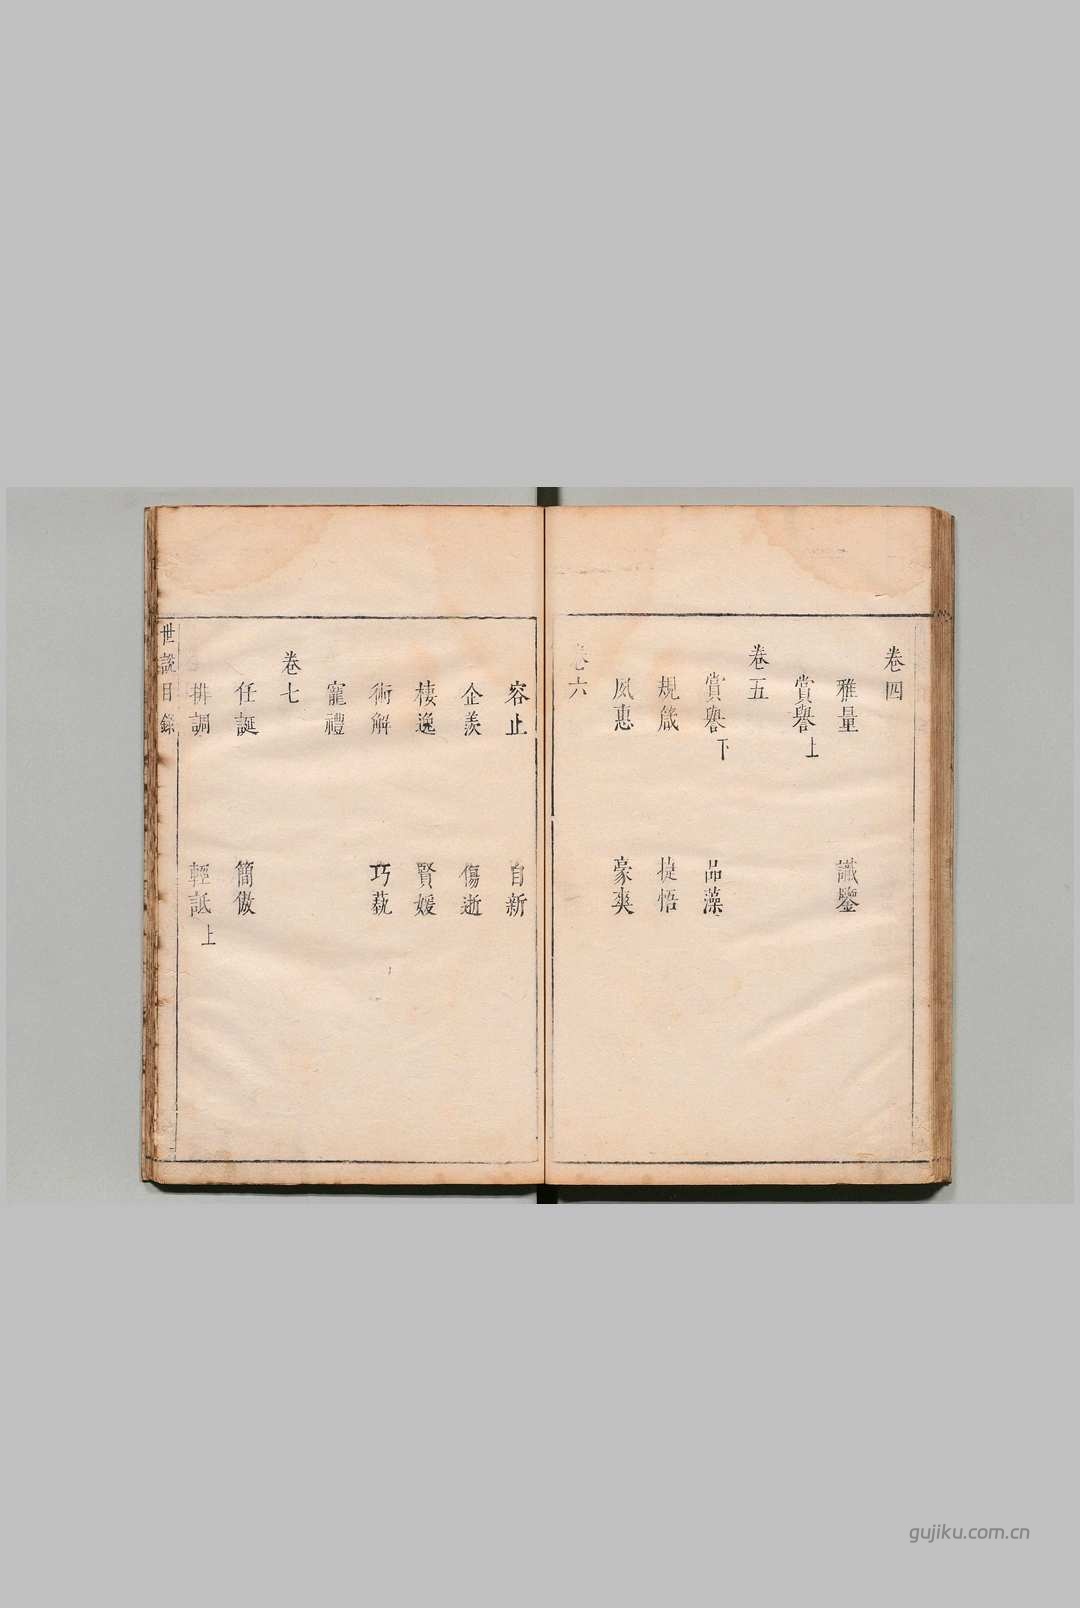 卷四
雅量　識鑒
賞譽上
卷五
賞譽下　品藻
規箴　捷悟
夙惠　豪爽
卷六
容止　自新
企羨　傷逝
棲逸　賢媛
術解　巧藝
寵禮
卷七
任誕　簡傲
排調　輕詆上
世說目錄
gujiku.com.cn